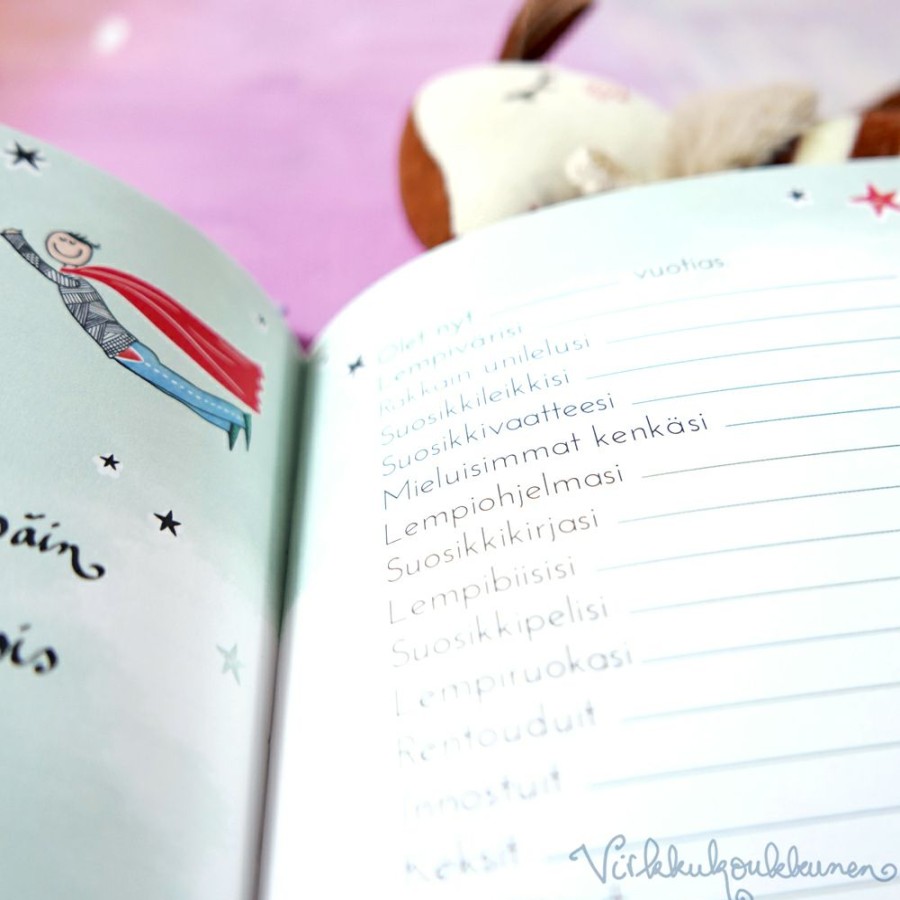 päin
ois
Olet nyt vuotias
Lempivärisi
Rakkain unilelusi
Suosikkileikkisi
Suosikkivaatteesi
Mieluisimmat kenkäsi
Lempiohjelmasi
Suosikkikirjasi
Lempibiisisi
Suosikkipelisi
Lempiruokasi
Rentouduit
Innostuit
Keksit
Virkkukoukkunen